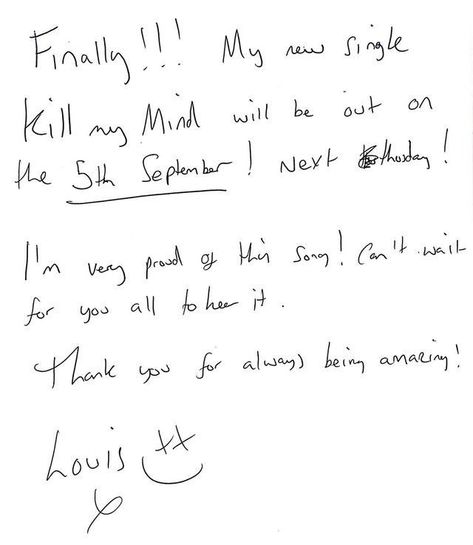 Finally!!! My new single
Kill my Mind will be out on
the 5th September! Next thursday!
I'm very proud of this song! Can't wait
for you all to hear it.
Thank you for always being amazing!
Louis xx
x